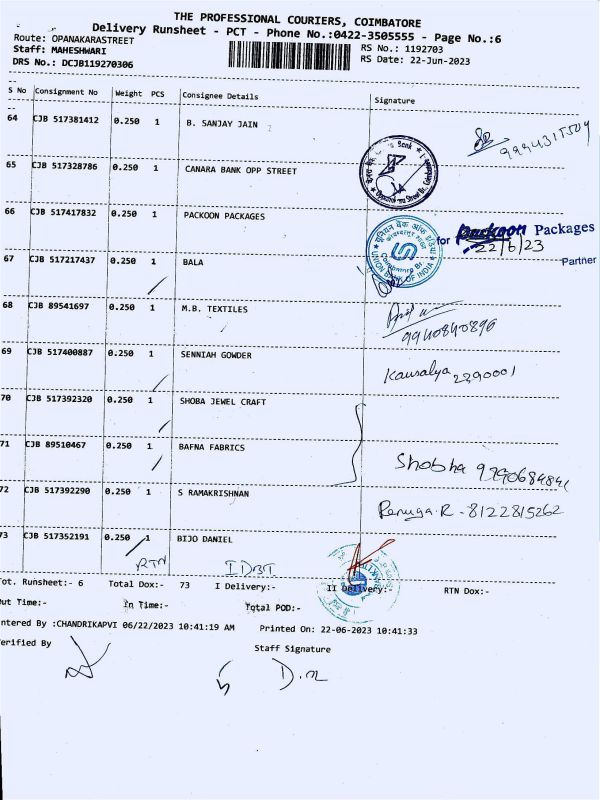 THE PROFESSIONAL COURIERS, COIMBATORE
Delivery Runsheet - PCT - Phone No.:0422-3505555 - Page No.:6
Route: OPANAKARASTREET
RS No.: 1192703
Staff: MAHESHWARI
RS Date: 22-Jun-2023
DRS No.: DCJB119270306
S No Consignment No Weight PCS Consignee Details Signature
64 CJB 517381412 0.250 1 B. SANJAY JAIN
65 CJB 517328786 0.250 1 CANARA BANK OPP STREET
66 CJB 517417832 0.250 1 PACKOON PACKAGES
for Packoon Packages
22/6/23
Partner
UNION BANK OF INDIA
67 CJB 517217437 0.250 1 BALA
68 CJB 89541697 0.250 1 M.B. TEXTILES
9940840896
69 CJB 517400887 0.250 1 SENNIAH GOWDER
Kausalya 2390001
70 CJB 517392320 0.250 1 SHOBA JEWEL CRAFT
71 CJB 89510467 0.250 1 BAFNA FABRICS
Shobha
72 CJB 517392290 0.250 1 S RAMAKRISHNAN
Renuga.R - 8122815262
73 CJB 517352191 0.250 1 BIJO DANIEL
RTN IDBI
Tot. Runsheet:- 6 Total Dox:- 73 I Delivery:- II Delivery:- RTN Dox:-
Out Time:- In Time:- Total POD:-
Entered By :CHANDRIKAPVI 06/22/2023 10:41:19 AM Printed On: 22-06-2023 10:41:33
Verified By
Staff Signature